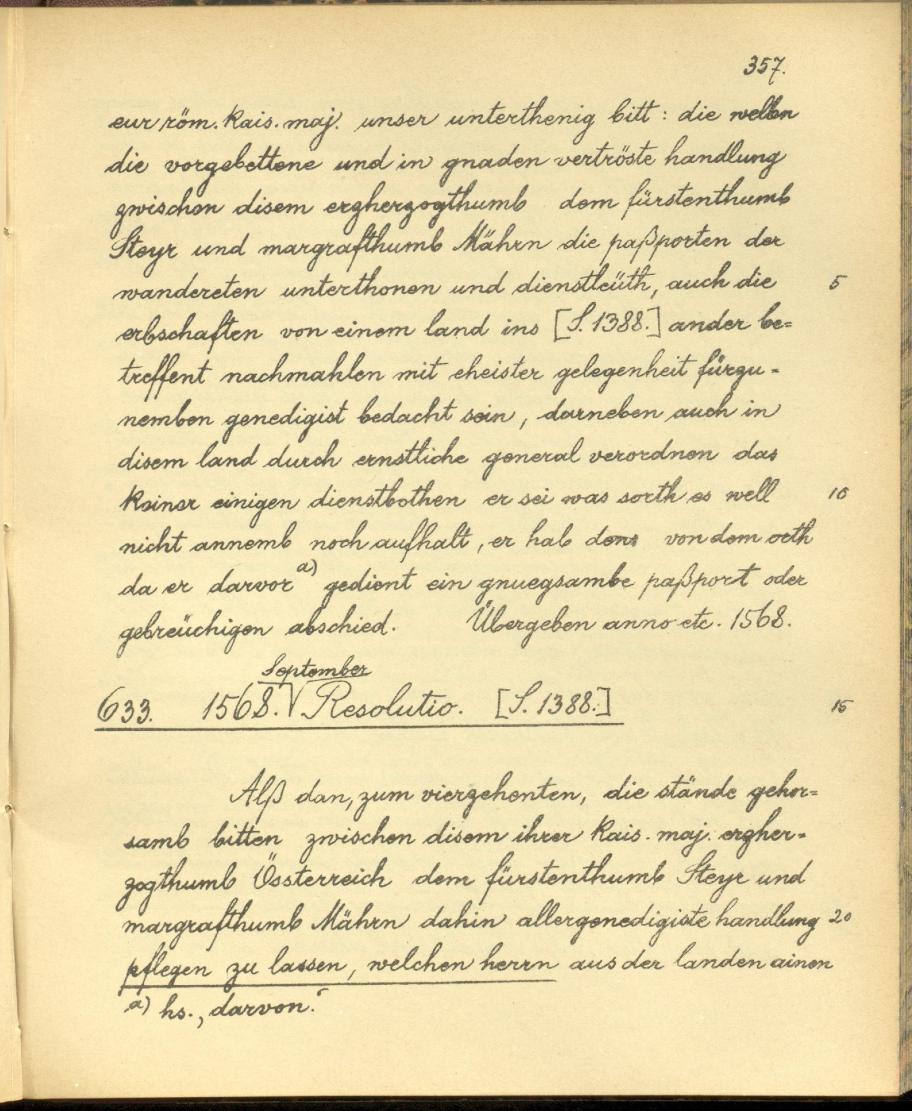 357.
eur röm. kais. maj. unser unterthenig bitt: die wellen
die vorgebettene und in gnaden vertröste handlung
zwischen disem erzherzogthumb dem fürstenthumb
Steyr und margrafthumb Mährn die paßporten der
wandereten unterthonen und dienstleüth, auch die 5
erbschaften von einem land ins [S. 1388.] ander be=
treffent nachmahlen mit eheister gelegenheit fürzu=
nemben genedigist bedacht sein, darneben auch in
disem land durch ernstliche general verordnen das
keiner einigen dienstbothen er sei was sorth es well 10
nicht annemb noch aufhalt, er hab dens von dem orth
da er darvor a) gedient ein gnuegsambe paßport oder
gebreüchigen abschied. Übergeben anno etc. 1568.
September
633. 1568. √ Resolutio. [S. 1388.] 15
Alß dan, zum vierzehenten, die stände gehor=
samb bitten zwischen disem ihrer kais. maj. erzher=
zogthumb Össterreich dem fürstenthumb Steyr und
margrafthumb Mährn dahin allergenedigiste handlung 20
pflegen zu lassen, welchen herrn aus der landen ainen
a) hs. „darvon“